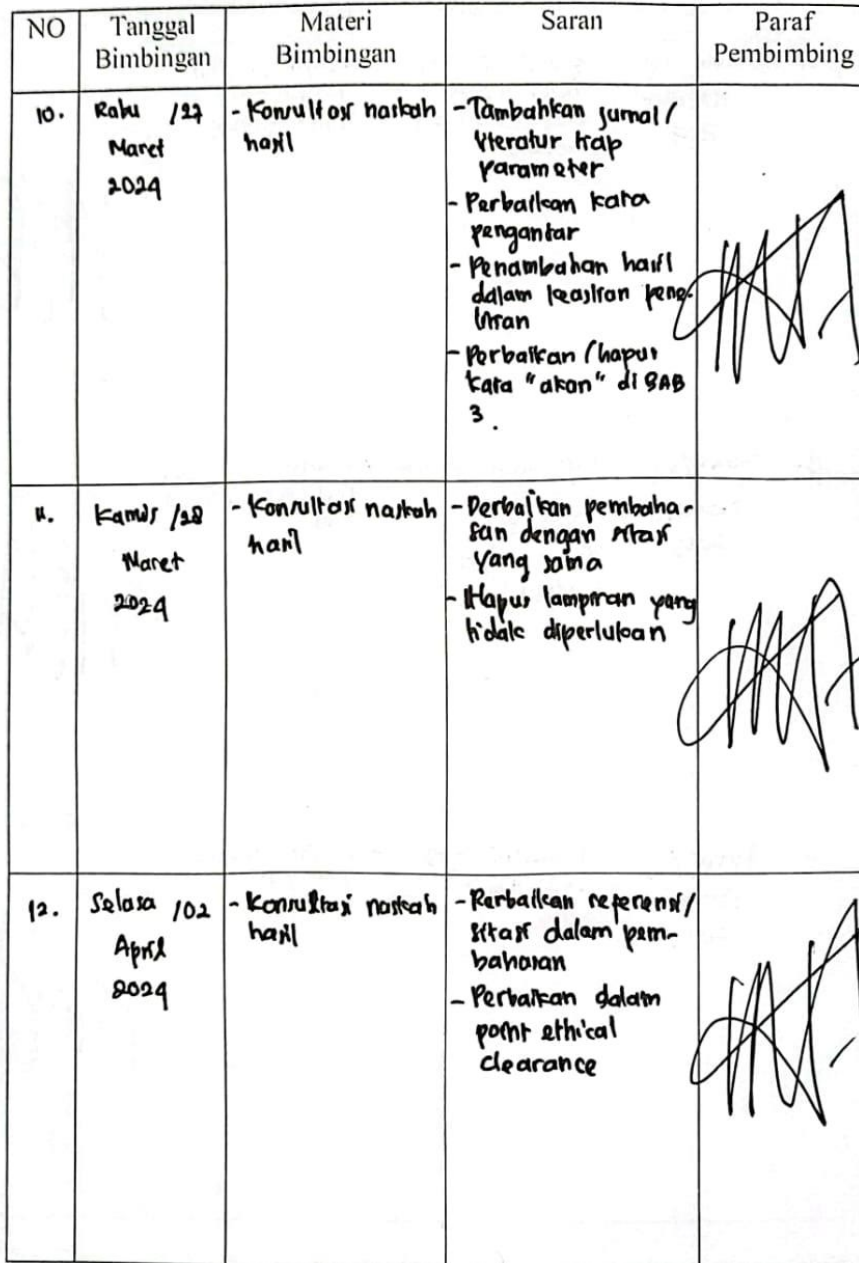 NO
Tanggal
Bimbingan
Materi
Bimbingan
Saran
Paraf
Pembimbing
10.
Rabu /27
Maret
2024
- Konsultasi naskah
hasil
- Tambahkan jurnal/
literatur tiap
parameter
- Perbaikan kata
pengantar
- Penambahan hasil
dalam keaslian pene-
litian
- Perbaikan/hapus
kata "akan" di BAB
3.
11.
Kamis /28
Maret
2024
- Konsultasi naskah
hasil
- Perbaikan pembaha-
san dengan sitasi
yang sama
- Hapus lampiran yang
tidak diperlukan
12.
Selasa /02
April
2024
- Konsultasi naskah
hasil
- Perbaikan referensi/
sitasi dalam pem-
bahasan
- Perbaikan dalam
point ethical
clearance